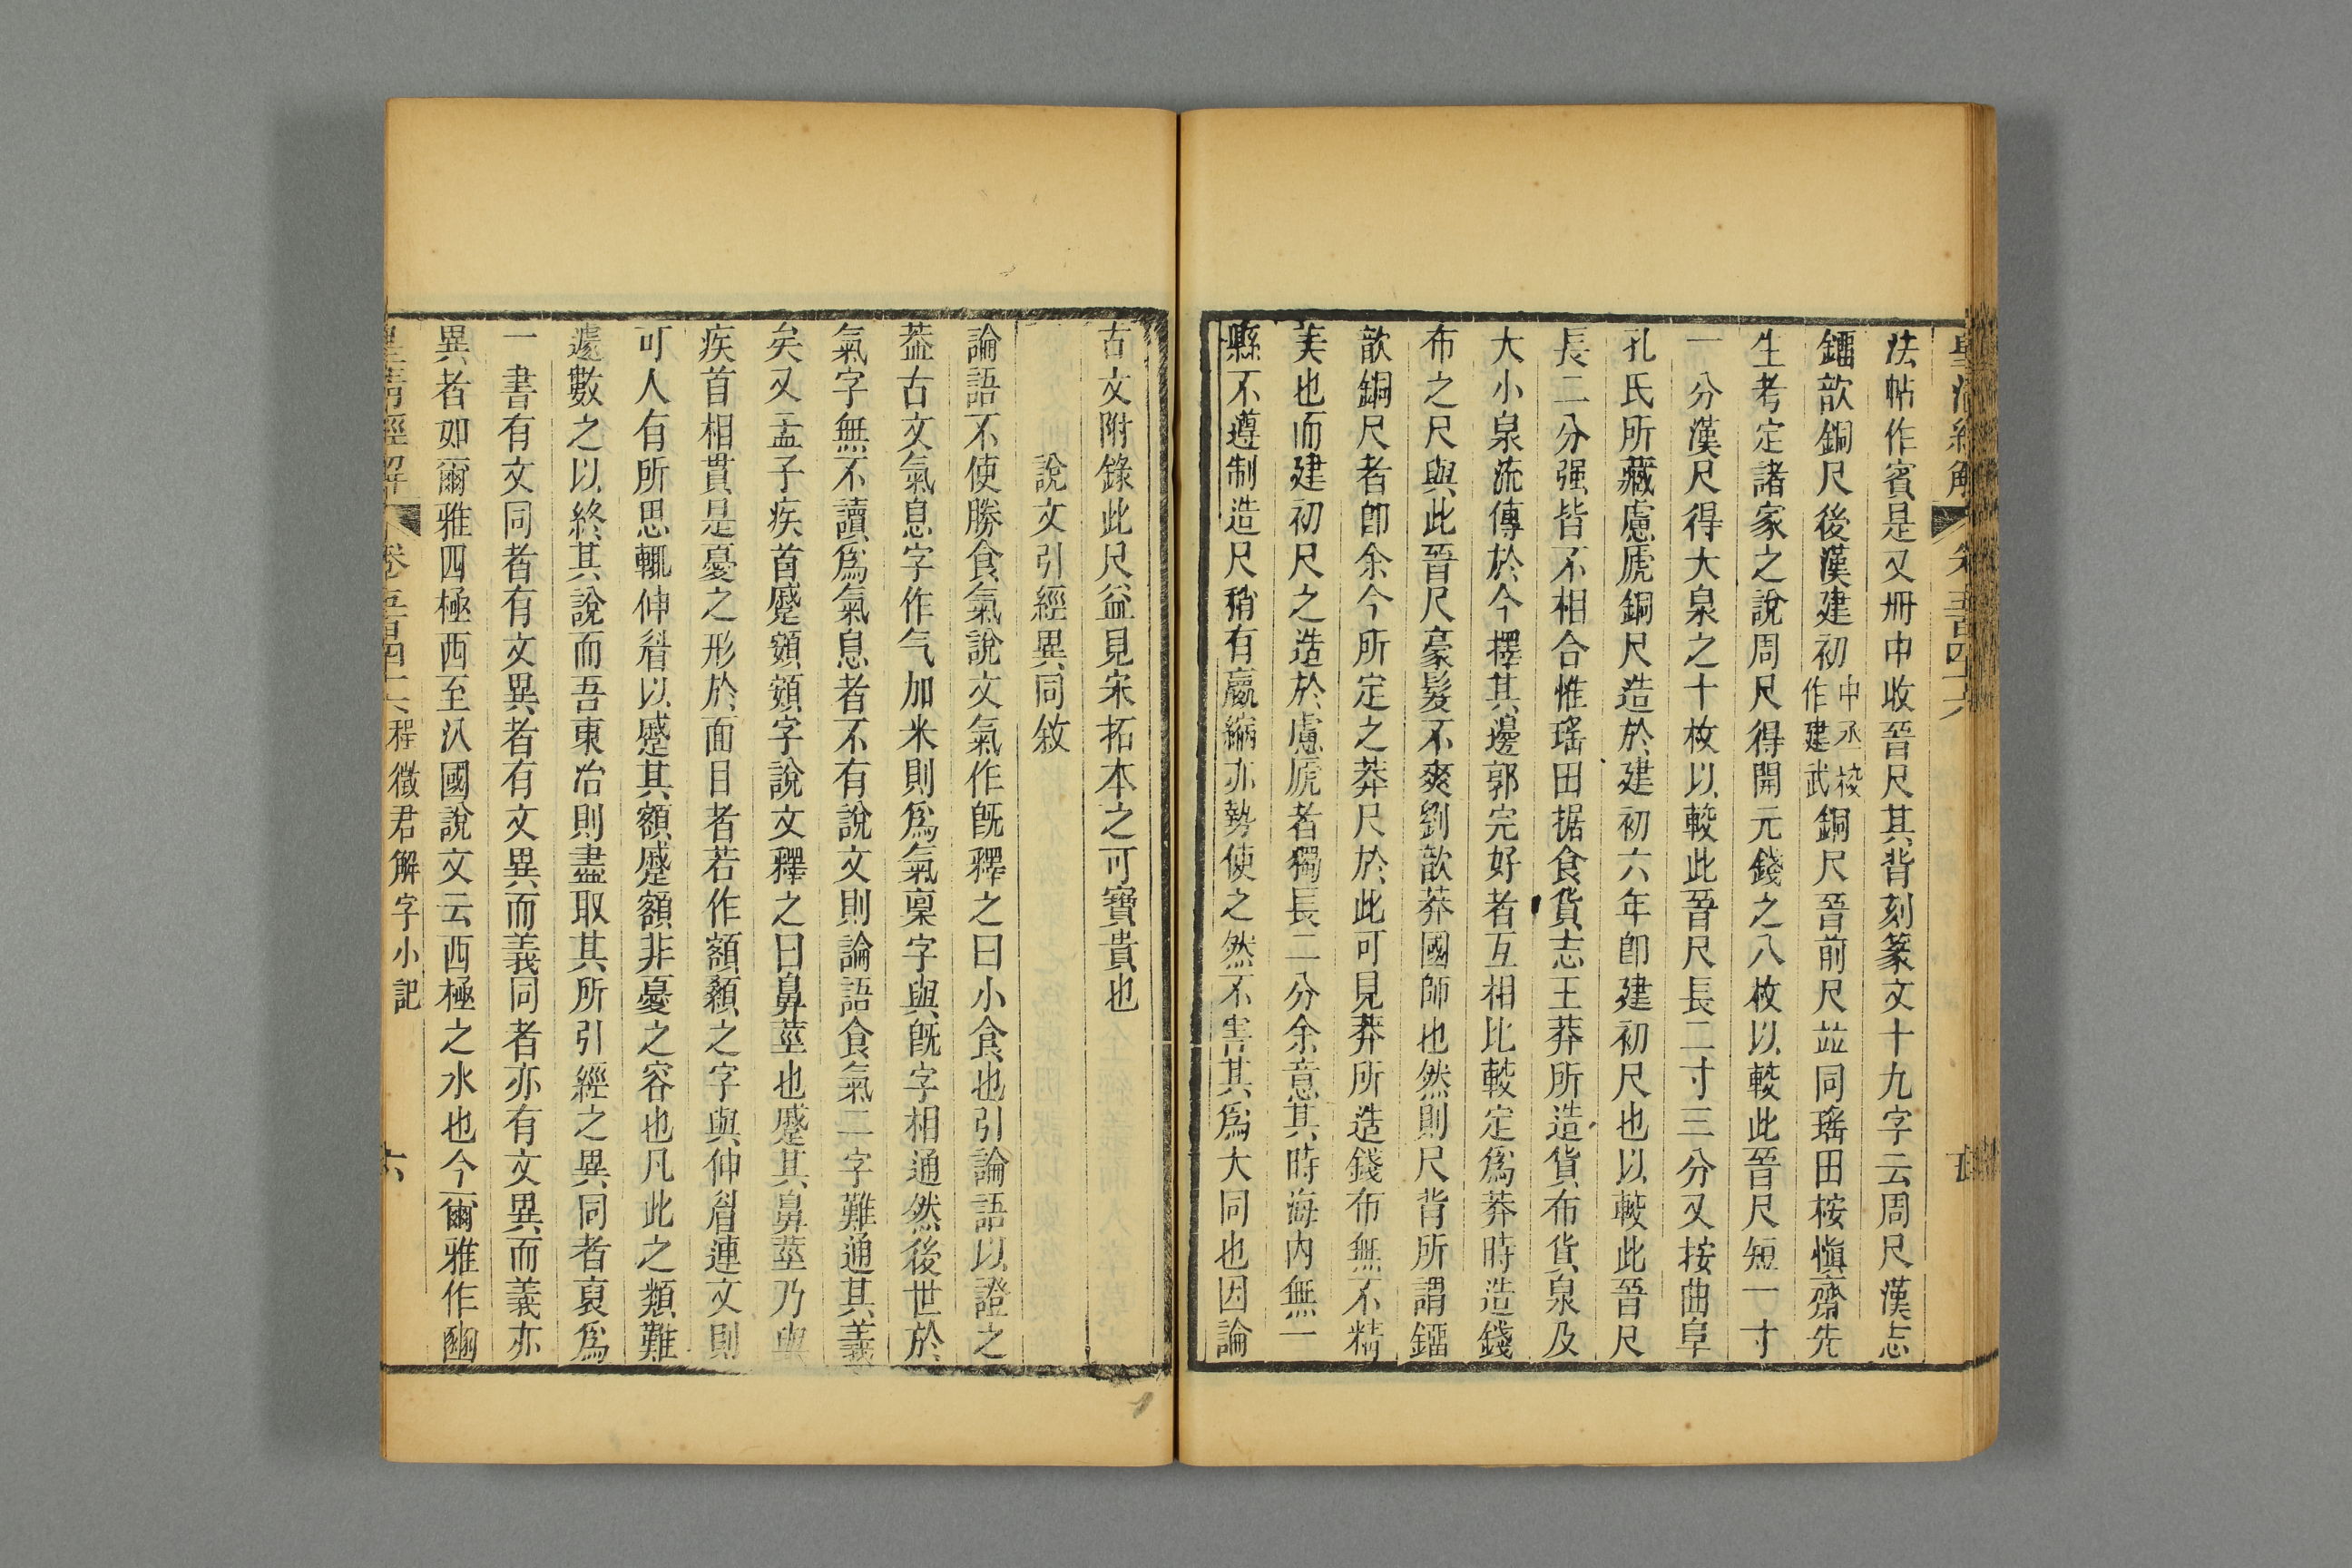 皇清經解 卷五百四十六
法帖作賓是又冊中收晉尺其背刻篆文十九字云周尺漢志
鎦歆銅尺後漢建初中丞校作建武銅尺晉前尺竝同瑤田桉愼齋先
生考定諸家之說周尺得開元錢之八枚以較此晉尺短一寸
一分漢尺得大泉之十枚以較此晉尺長二寸三分又按曲阜
孔氏所藏慮俿銅尺造於建初六年卽建初尺也以較此晉尺
長二分强皆不相合惟瑤田据食貨志王莽所造貨布貨泉及
大小泉流傳於今擇其邊郭完好者互相比較定爲莽時造錢
布之尺與此晉尺豪髮不爽劉歆莽國師也然則尺背所謂鎦
歆銅尺者卽余今所定之莽尺於此可見莽所造錢布無不精
美也而建初尺之造於慮俿者獨長二分余意其時海內無一
縣不遵制造尺稍有贏縮亦勢使之然不害其爲大同也因論
古文附錄此尺益見宋拓本之可寶貴也
說文引經異同敘
論語不使勝食氣說文氣作旣釋之曰小食也引論語以證之
葢古文氣息字作气加米則爲氣稟字與旣字相通然後世於
氣字無不讀爲氣息者不有說文則論語食氣二字難通其義
矣又孟子疾首蹙頞頞字說文釋之曰鼻莖也蹙其鼻莖乃與
疾首相貫是憂之形於面目者若作額顙之字與伸眉連文則
可人有所思輒伸眉以蹙其額蹙額非憂之容也凡此之類難
遽數之以終其說而吾東冶則盡取其所引經之異同者裒爲
一書有文同者有文異者有文異而義同者亦有文異而義亦
異者如爾雅四極西至汃國說文云西極之水也今爾雅作豳
皇清經解 卷五百四十六 程徵君解字小記 六